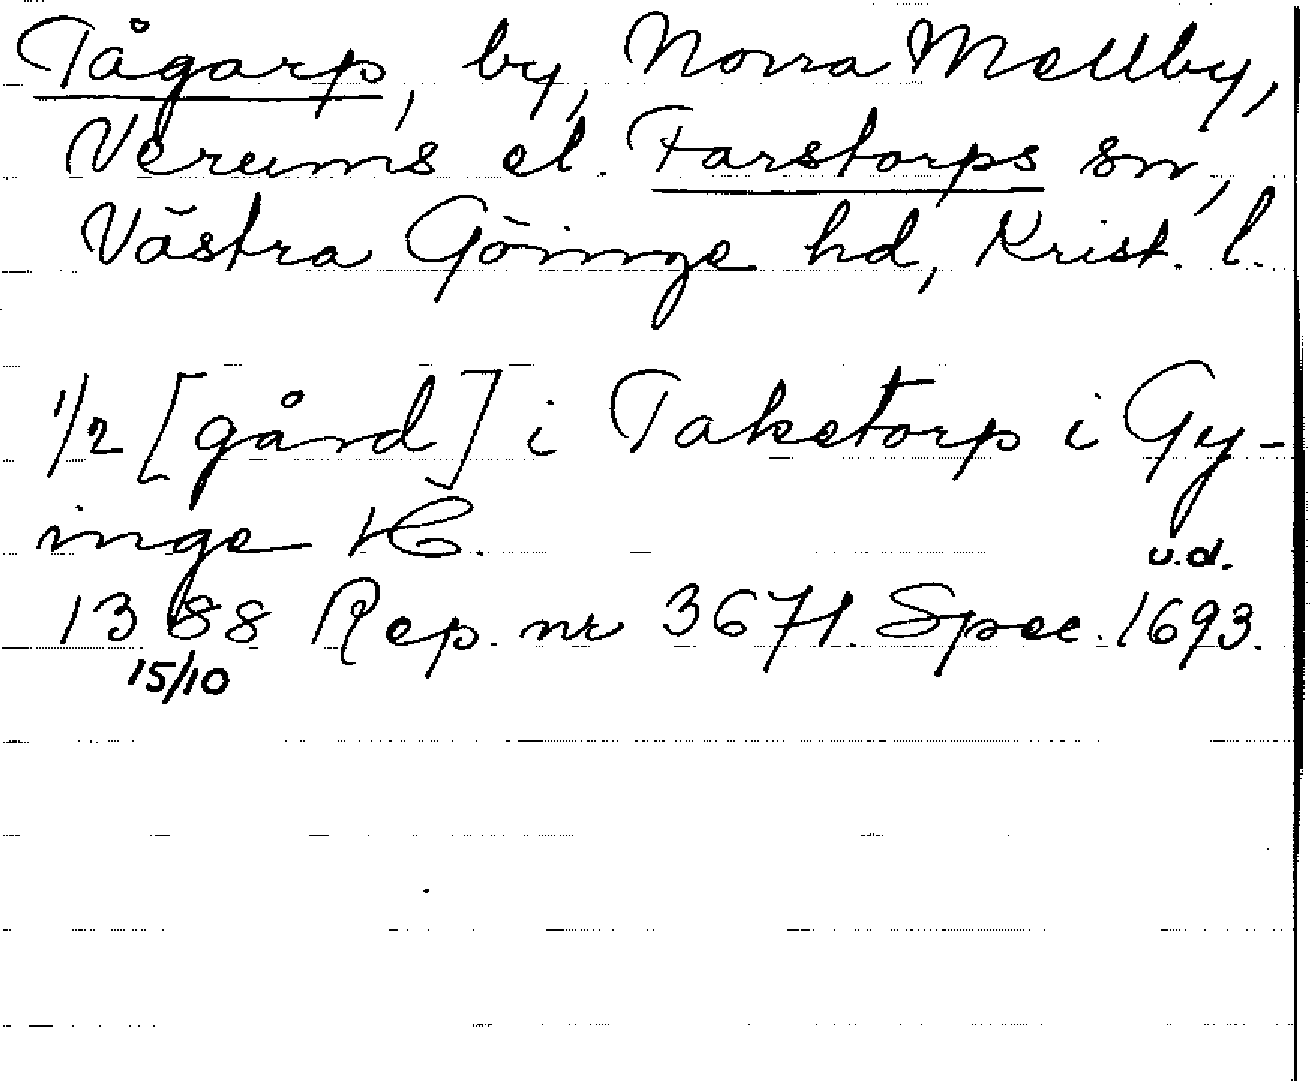 Tågarp, by, Norra Mellby,
Verums el. Farstorps sn,
Västra Göinge hd, Krist. l.
1/2 [gård] i Taketorp i Gy-
inge H.
u.d.
1388 Rep. nr 3671. Spec. 1693.
15/10